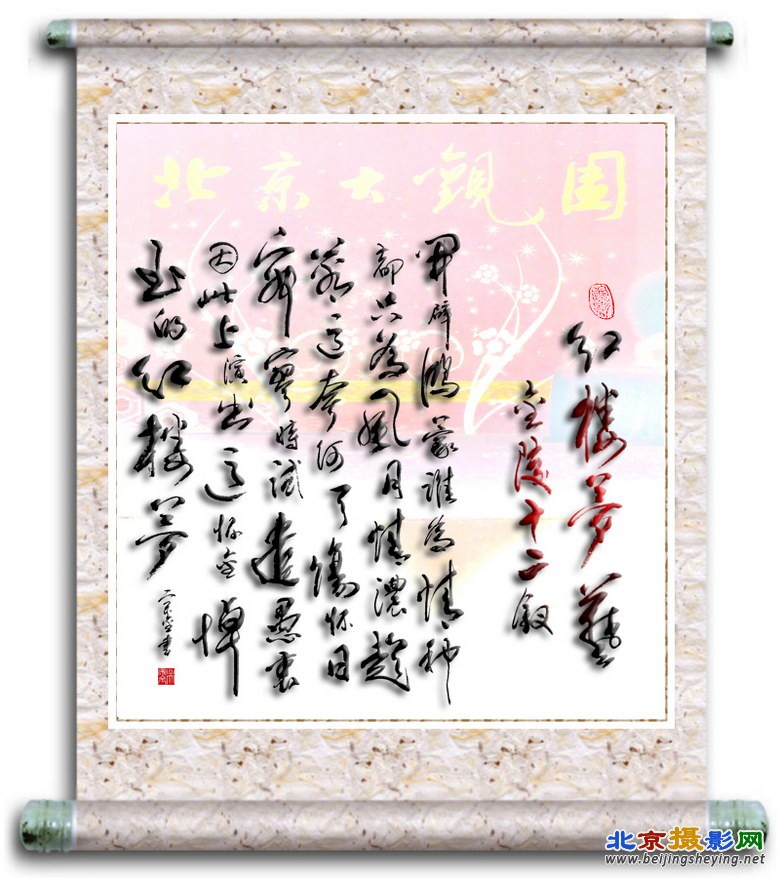 北京大觀園
红楼梦
金陵十二叙
开辟鸿蒙谁为情种
都只为风月情浓趁
着这奈何天伤怀日
寂寥时试遣愚衷
因此上演出这怀金悼
玉的红楼梦
书
北京摄影网
www.beijingsheying.net